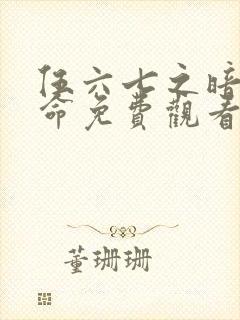 伍六七之暗
命免費觀看
董珊珊